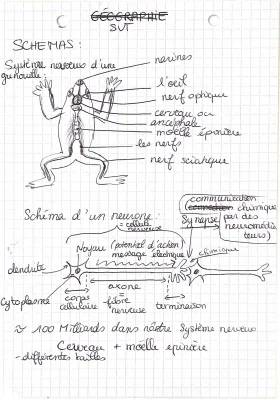 GÉOGRAPHIE
SVT
SCHEMAS :
Système nerveux d'une
grenouille
narines
l'oeil
nerf optique
cerveau ou
encéphale
moelle épinière
les nerfs
nerf sciatique
communication
chimique
par des
neuromédia
teurs)
Synapse
Schéma d'un neurone :
= cellule
nerveuse
Noyau (potentiel d'action
message électrique)
chimique
dendrite
Cytoplasme
corps
cellulaire
axone
= fibre
nerveuse
terminaison
≈ 100 Milliards dans nôtre Système nerveux
Cerveau + moelle épinière
- différentes tailles